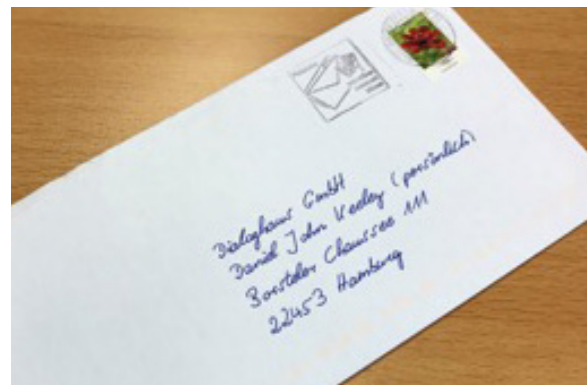 Dialoghaus GmbH
Daniel John Verley (persönlich)
Borsteler Chaussee 111
22453 Hamburg